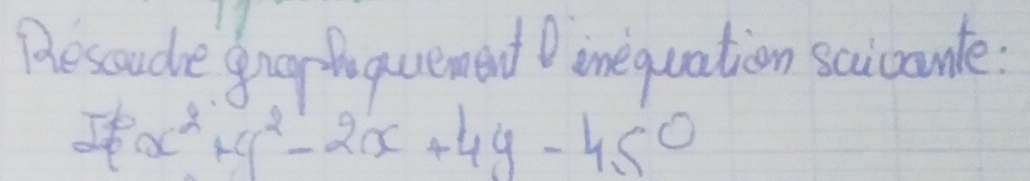 Résoudre graphiquement l'inéquation suivante:
x² + y² - 2x + 4y - 4 ≤ 0